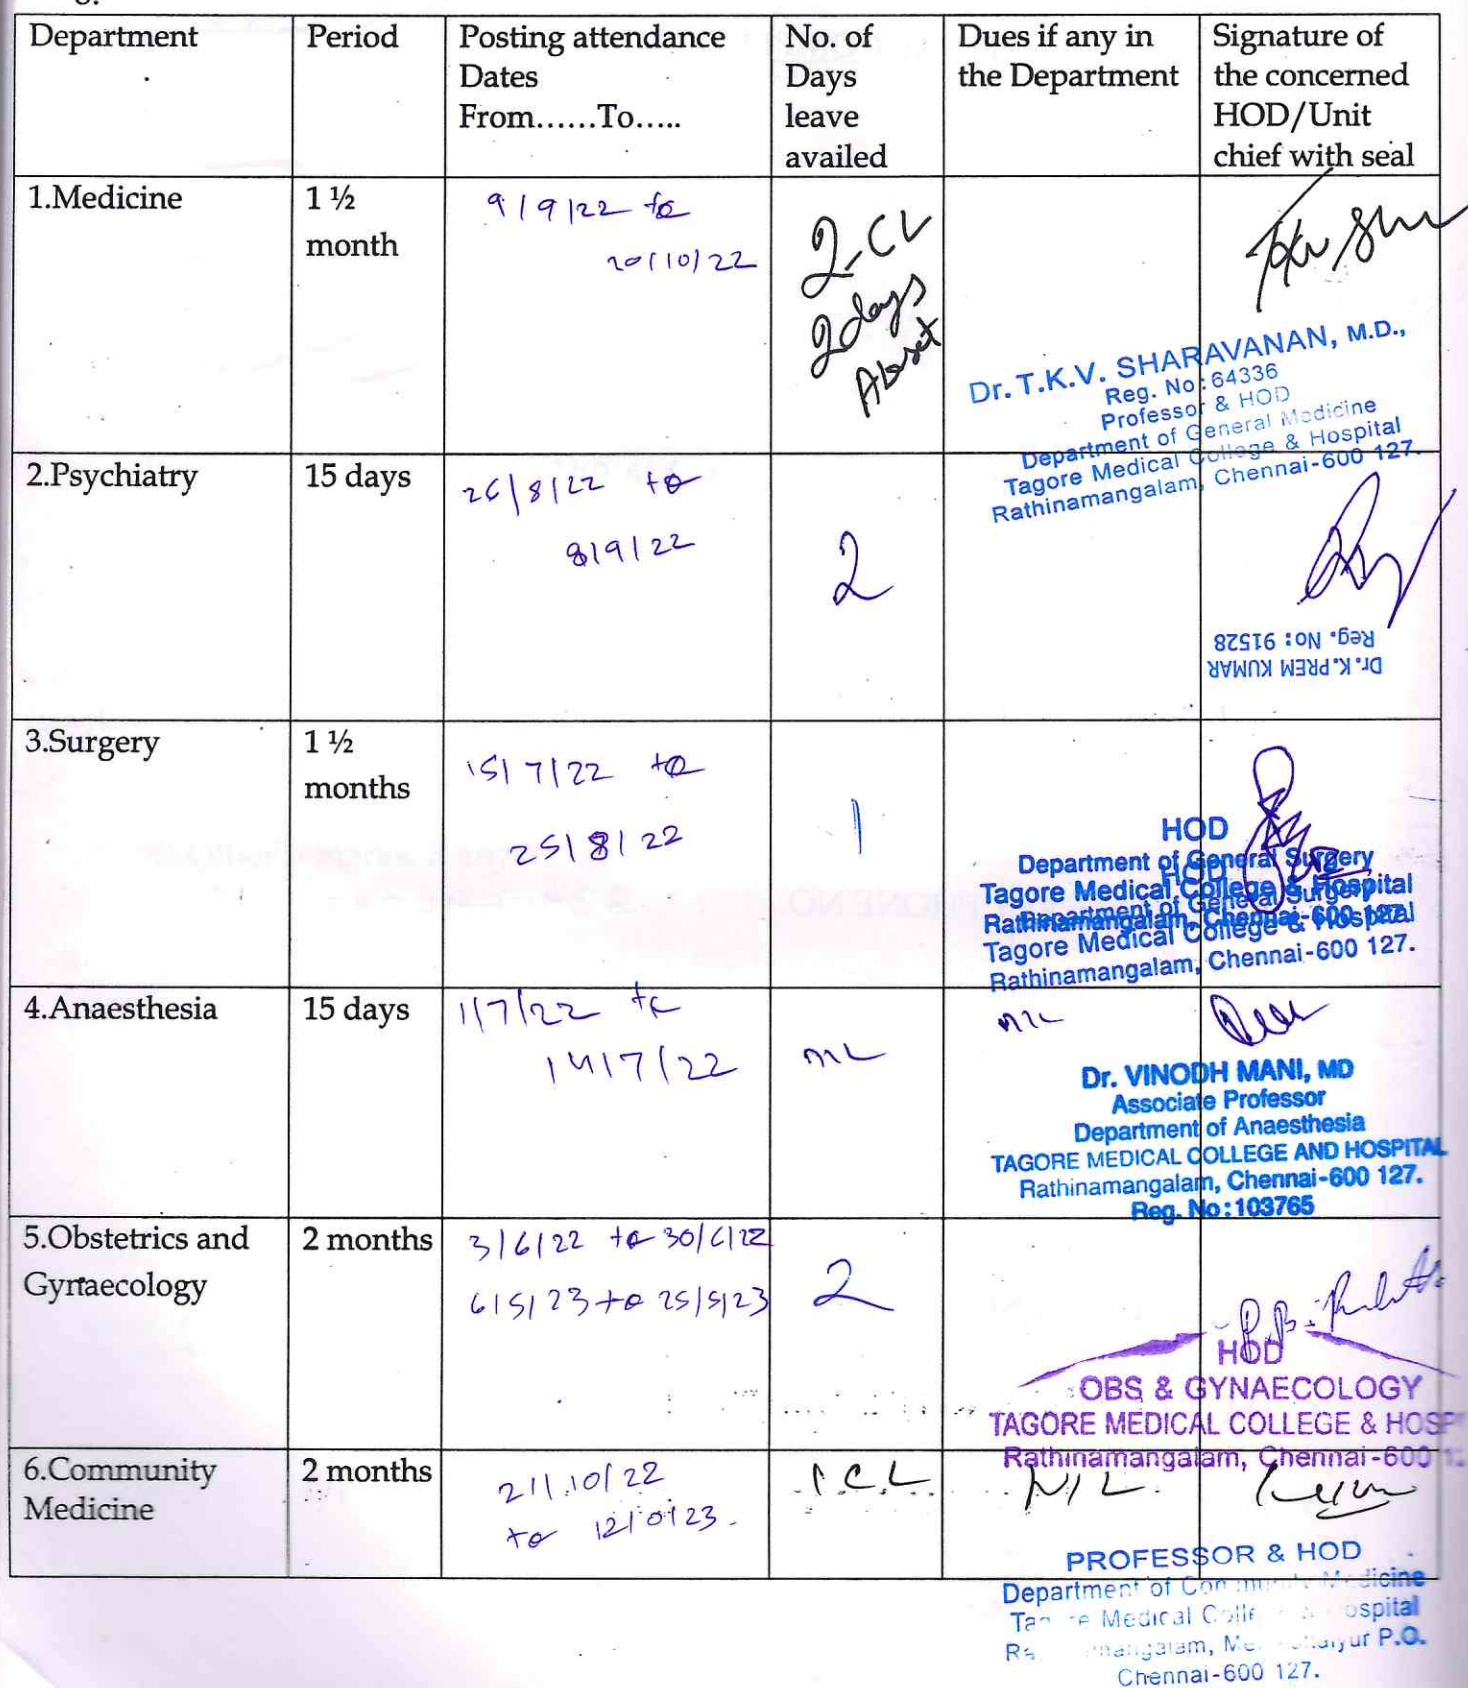 Department
Period
Posting attendance
Dates
From......To.....
No. of
Days
leave
availed
Dues if any in
the Department
Signature of
the concerned
HOD/Unit
chief with seal
1.Medicine
1 ½
month
9/9/22 to
20/10/22
2-CL
2 days
Abset
Dr. T.K.V. SHARAVANAN, M.D.,
Reg. No: 64336
Professor & HOD
Department of General Medicine
Tagore Medical College & Hospital
Rathinamangalam, Chennai-600 127.
2.Psychiatry
15 days
26/8/22 to
8/9/22
2
Dr. K. PREM KUMAR
Reg. No: 91528
3.Surgery
1 ½
months
15/7/22 to
25/8/22
1
HOD
Department of General Surgery
Tagore Medical College & Hospital
Rathinamangalam, Chennai-600 127.
HOD
Department of General Surgery
Tagore Medical College & Hospital
Rathinamangalam, Chennai-600 127.
4.Anaesthesia
15 days
1/7/22 to
14/7/22
NIL
NIL
Dr. VINODH MANI, MD
Associate Professor
Department of Anaesthesia
TAGORE MEDICAL COLLEGE AND HOSPITAL
Rathinamangalam, Chennai-600 127.
Reg. No:103765
5.Obstetrics and
Gynaecology
2 months
3/6/22 to 30/6/22
6/5/23 to 25/5/23
2
HOD
OBS & GYNAECOLOGY
TAGORE MEDICAL COLLEGE & HOSP
Rathinamangalam, Chennai-600
6.Community
Medicine
2 months
21/10/22
to
1 C.L
NIL.
PROFESSOR & HOD
Department of Community Medicine
Medical
Chennai-600 127.